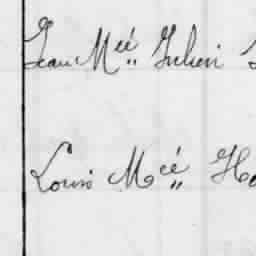 Jean M^cé Julien
Louis M^cé Ho